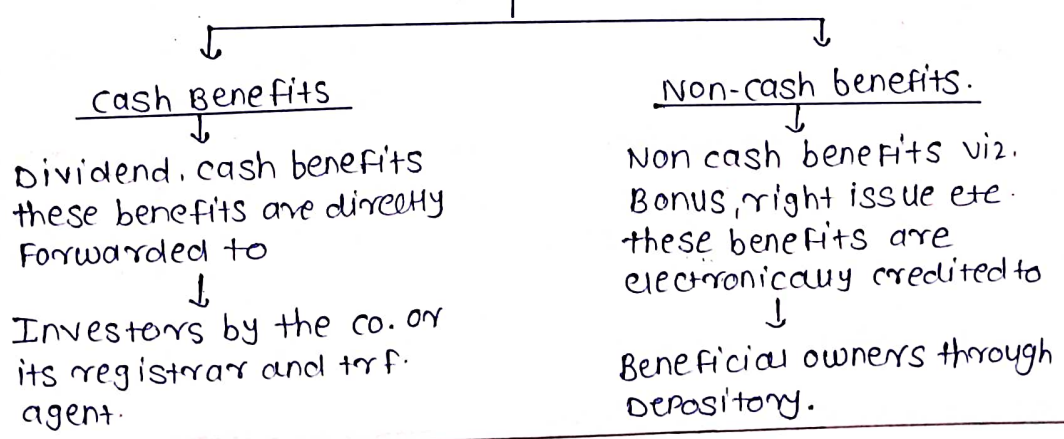 Cash Benefits
Dividend, cash benefits
these benefits are directly
Forwarded to
Investors by the co. or
its registrar and trf.
agent.
Non-cash benefits.
Non cash benefits viz.
Bonus, right issue etc.
these benefits are
electronically credited to
Beneficial owners through
Depository.